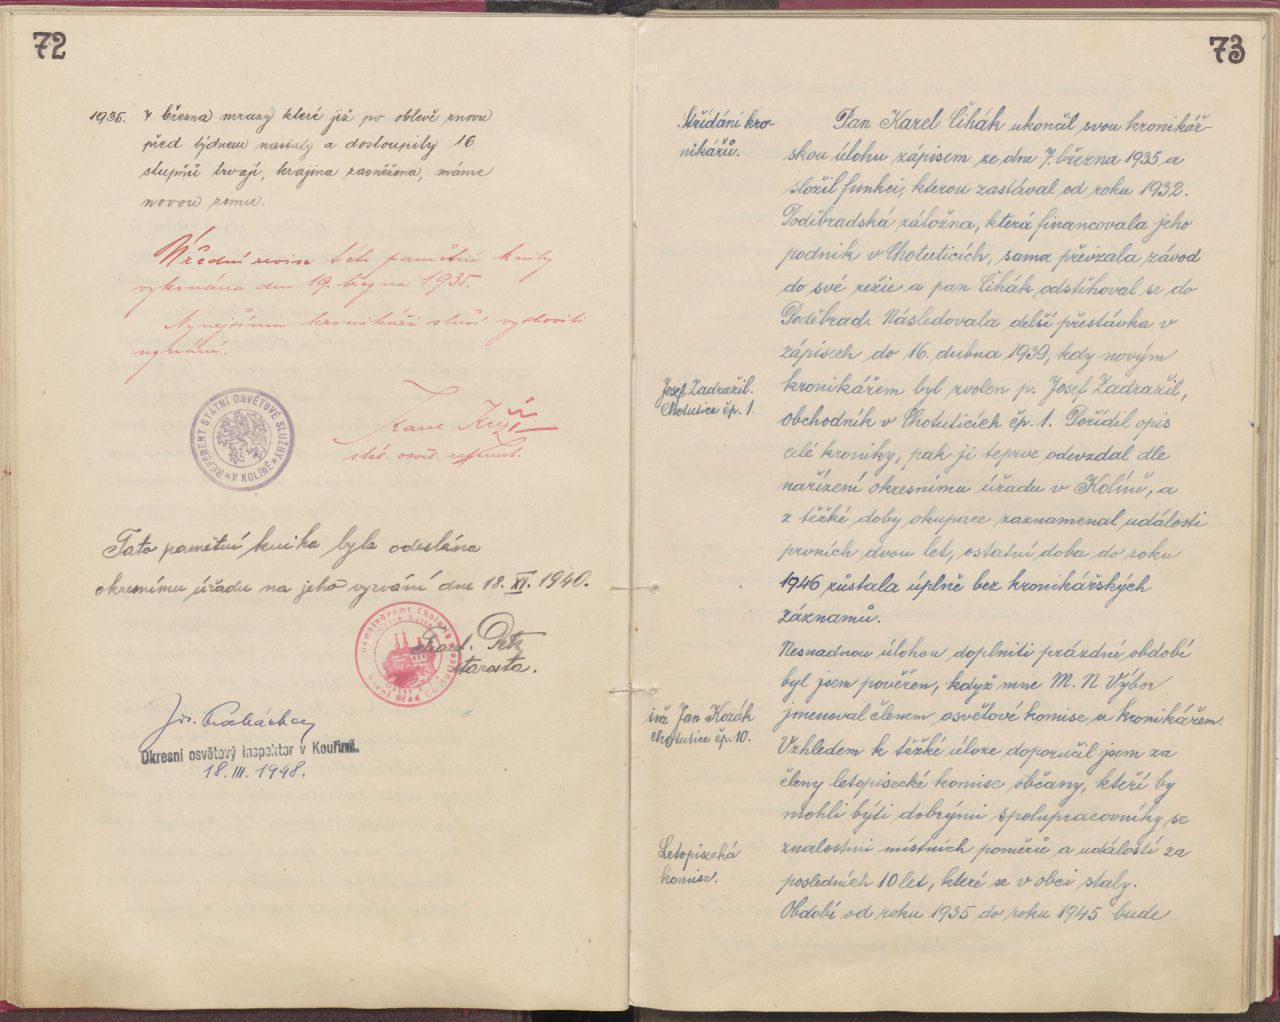 72
1935. 7. března mrazy které již po oblevě znovu
před týdnem nastaly a dostoupily 16
stupňů trvají, krajina zasněžena, máme
novou zimu.
Úřední revise této pamětní knihy
vykonána dne 19. března 1935.
Nynějšímu kronikáři sluší vysloviti
uznání.
REFERENT STÁTNÍ OSVĚTOVÉ SLUŽBY
V KOLÍNĚ
Karel Kříž
stát. osvět. referent.
Tato pamětní kniha byla odeslána
okresnímu úřadu na jeho vyzvání dne 18. XI. 1940.
Gemeindeamt
Obecní úřad
Frant. Petr
starosta.
Okresní osvětový inspektor v Kouřimi.
18. III. 1948.
73
Střídání kro-
nikářů.
Pan Karel Čihák ukončil svou kronikář-
skou úlohu zápisem ze dne 7. března 1935 a
složil funkci, kterou zastával od roku 1932.
Poděbradská záložna, která financovala jeho
podnik v Chotuticích, sama převzala závod
do své režie a pan Čihák odstěhoval se do
Poděbrad. Následovala delší přestávka v
zápisech do 16. dubna 1939, kdy novým
Josef Zadražil.
Chotutice čp. 1.
kronikářem byl zvolen p. Josef Zadražil,
obchodník v Chotuticích čp. 1. Pořídil opis
celé kroniky, pak ji teprve odevzdal dle
nařízení okresnímu úřadu v Kolíně, a
z těžké doby okupace zaznamenal události
prvních dvou let, ostatní doba do roku
1946 zůstala úplně bez kronikářských
záznamů.
Nesnadnou úlohou doplniti prázdné období
byl jsem pověřen, když mne M. N Výbor
inž Jan Kozák
Chotutice čp. 10.
jmenoval členem osvětové komise a kronikářem.
Vzhledem k těžké úloze doporučil jsem za
členy letopisecké komise občany, kteří by
mohli býti dobrými spolupracovníky se
Letopisecká
komise.
znalostmi místních poměrů a událostí za
posledních 10 let, které se v obci staly.
Období od roku 1935 do roku 1945 bude